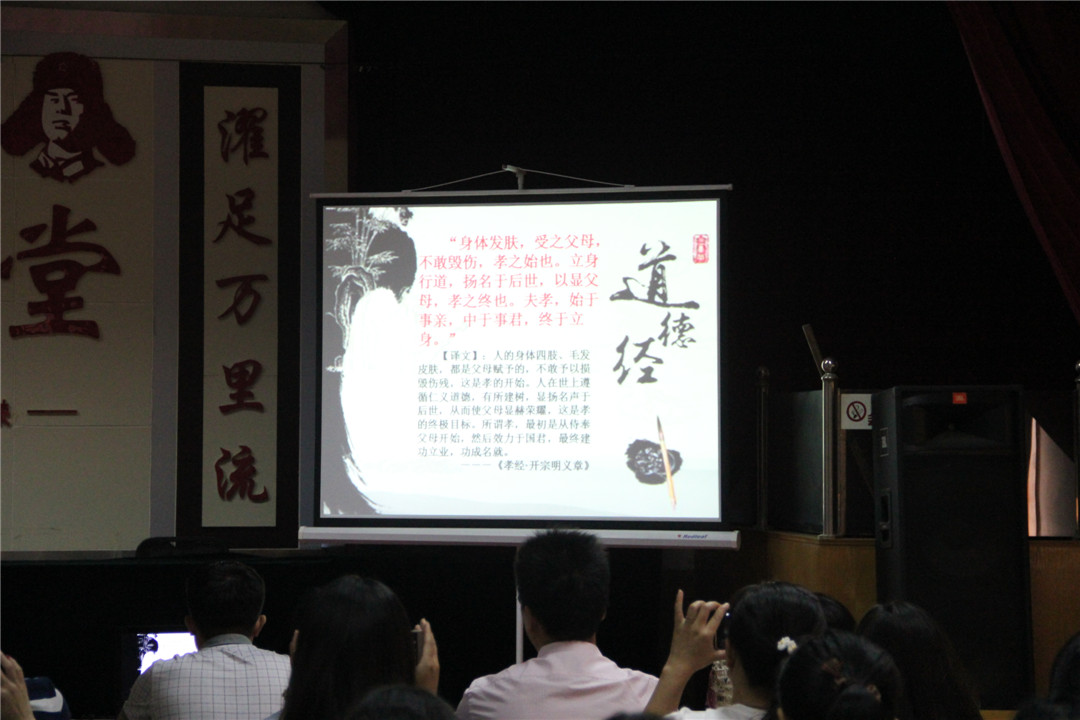 堂
濯足万里流
“身体发肤，受之父母，
不敢毁伤，孝之始也。立身
行道，扬名于后世，以显父
母，孝之终也。夫孝，始于
事亲，中于事君，终于立
身。”
【译文】：人的身体四肢、毛发
皮肤，都是父母赋予的，不敢予以损
毁伤残，这是孝的开始。人在世上遵
循仁义道德，有所建树，显扬名声于
后世，从而使父母显赫荣耀，这是孝
的终极目标。所谓孝，最初是从侍奉
父母开始，然后效力于国君，最终建
功立业，功成名就。
———《孝经·开宗明义章》
道德经
JBL